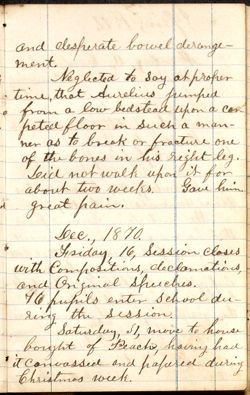 and desperate bowel derange-
ment.
Neglected to say at proper
time, that Aurelius jumped
from a low bedstead upon a car-
peted floor in such a man-
ner as to break or fracture one
of the bones in his right leg.
Did not walk upon it for
about two weeks. Gave him
great pain.
Dec., 1870.
Friday, 16, Session closes
with Compositions, declamations,
and Original speeches.
76 pupils enter School du-
ring the session.
Saturday, 31, move to house
bought of Peach, having had
it canvassed and papered during
Christmas week.